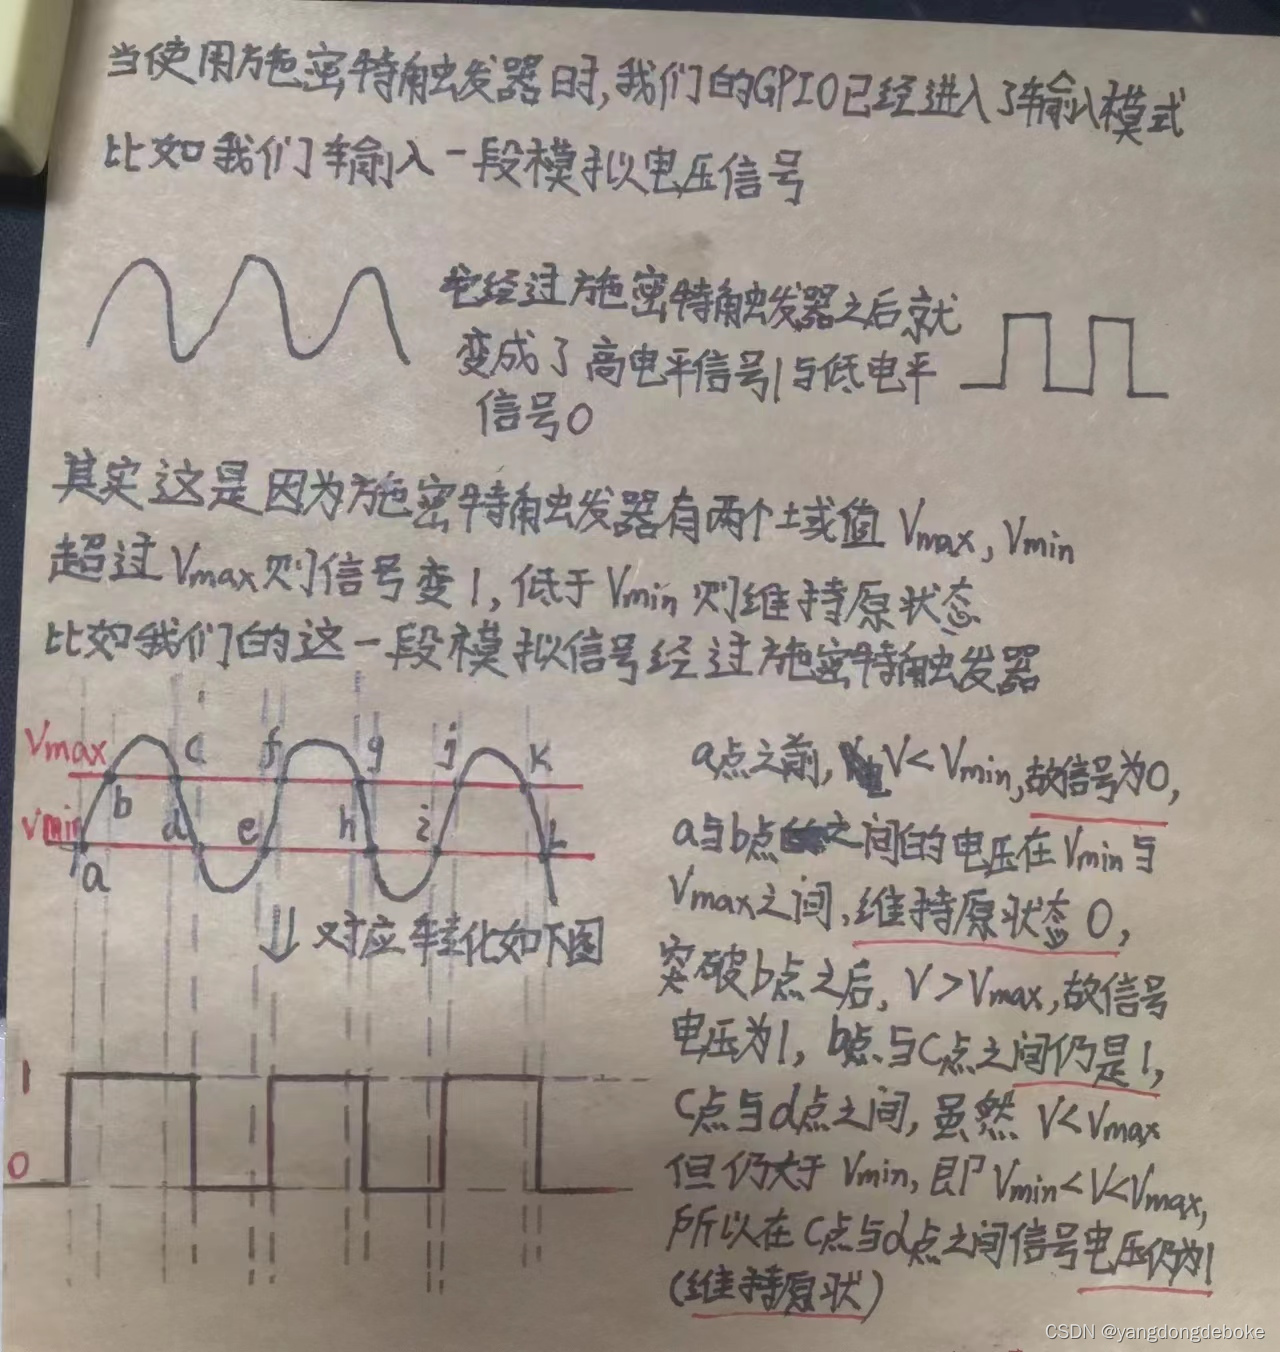 当使用施密特触发器时,我们的GPIO已经进入了输入模式
比如我们输入一段模拟电压信号
它经过施密特触发器之后就
变成了高电平信号1与低电平
信号0
其实这是因为施密特触发器有两个域值 Vmax, Vmin
超过Vmax则信号变1, 低于Vmin则维持原状态
比如我们的这一段模拟信号经过施密特触发器
Vmax
Vmin
a
b
c
d
e
f
g
h
i
j
k
L
对应转化如下图
1
0
a点之前, V<Vmin,故信号为0,
a与b点之间的电压在Vmin与
Vmax之间,维持原状态0,
突破b点之后, V>Vmax,故信号
电压为1, b点与c点之间仍是1,
c点与d点之间, 虽然 V<Vmax
但仍大于 Vmin, 即Vmin<V<Vmax,
所以在c点与d点之间信号电压仍为1
(维持原状)
CSDN @yangdongdeboke